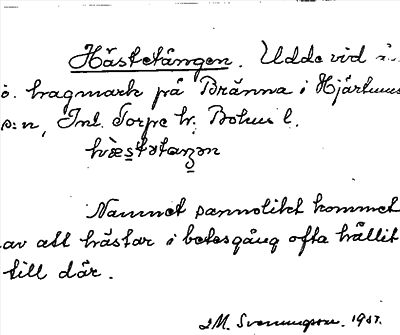 Hästetången. Udde vid
ö. hagmark på Bränna i Hjärtums
s:n, Inl. Torpe hr, Bohus l.
Namnet sannolikt kommet
av att hästar i betesgång ofta hållit
till där.
M. Svenungsson.